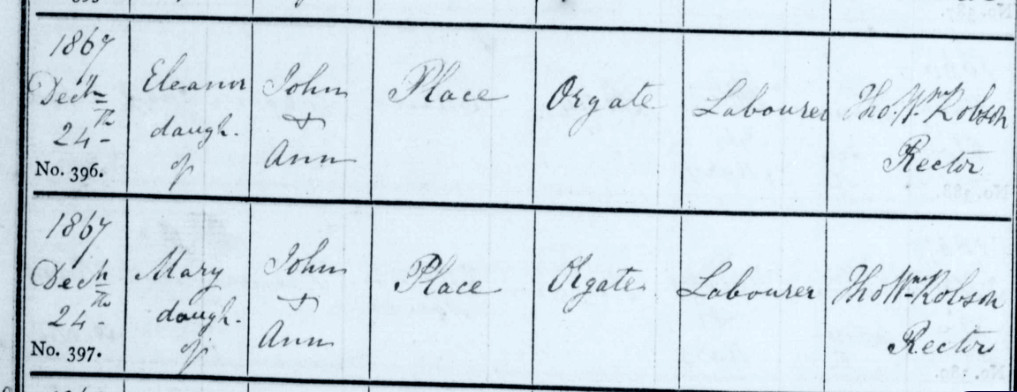 1867
Decr
24th
No. 396.
Eleanor
daugh.
of
John
&
Ann
Place
Orgate
Labourer
Thos. Wm. Robson
Rector
1867
Decr
24th
No. 397.
Mary
daugh.
of
John
&
Ann
Place
Orgate
Labourer
Thos Wm Robson
Rector